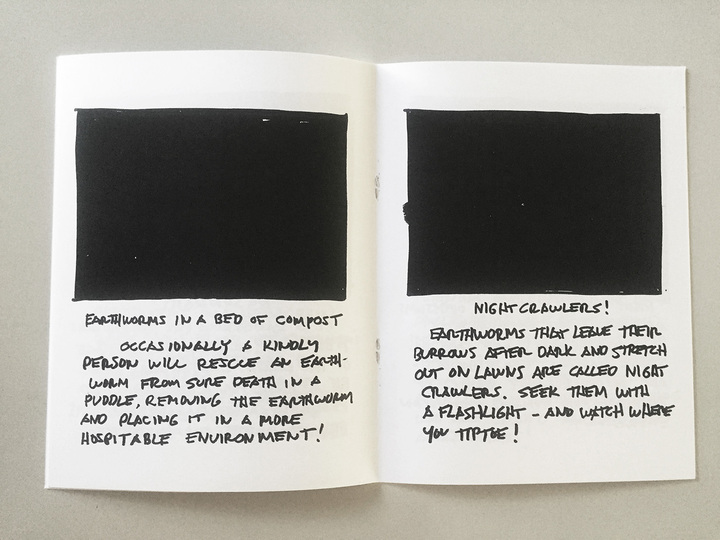 EARTHWORMS IN A BED OF COMPOST
OCCASIONALLY A KINDLY
PERSON WILL RESCUE AN EARTH-
WORM FROM SURE DEATH IN A
PUDDLE, REMOVING THE EARTHWORM
AND PLACING IT IN A MORE
HOSPITABLE ENVIRONMENT!
NIGHT CRAWLERS!
EARTHWORMS THAT LEAVE THEIR
BURROWS AFTER DARK AND STRETCH
OUT ON LAWNS ARE CALLED NIGHT
CRAWLERS. SEEK THEM WITH
A FLASHLIGHT - AND WATCH WHERE
YOU TIPTOE!